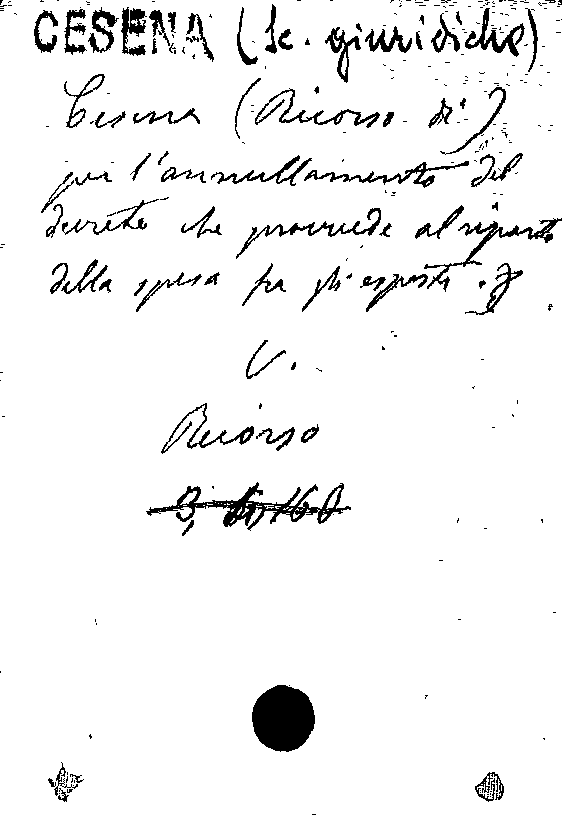 CESENA (Sc. giuridiche)
Cesena (Ricorso di)
per l'annullamento del
decreto che provvede al riparto
della spesa fra gli esposti.
V.
Ricorso